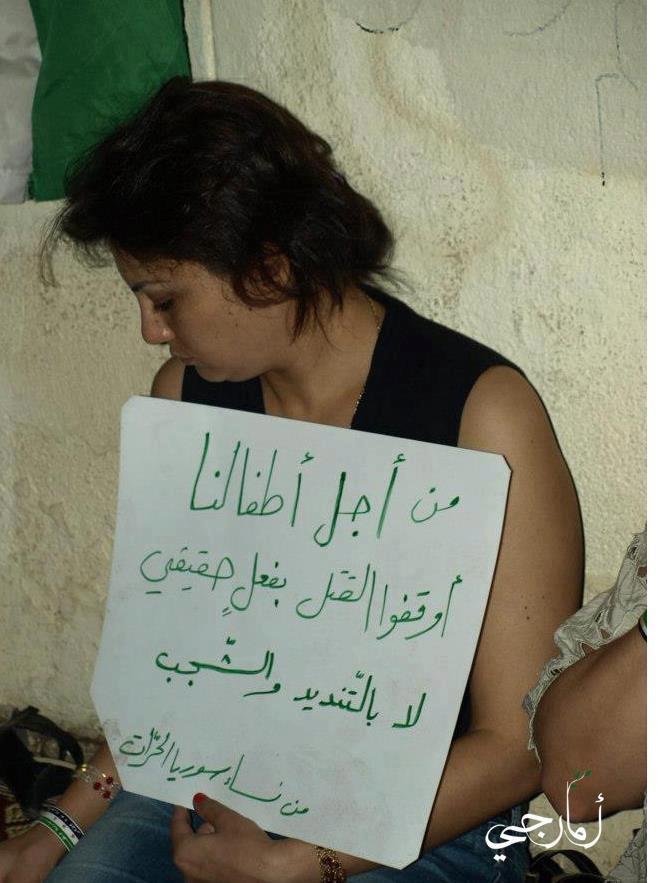 من أجل أطفالنا
أوقفوا القتل بفعلٍ حقيقي
لا بالتّنديد والشّجب
من نساء سوريا الحرّات
أمارجي